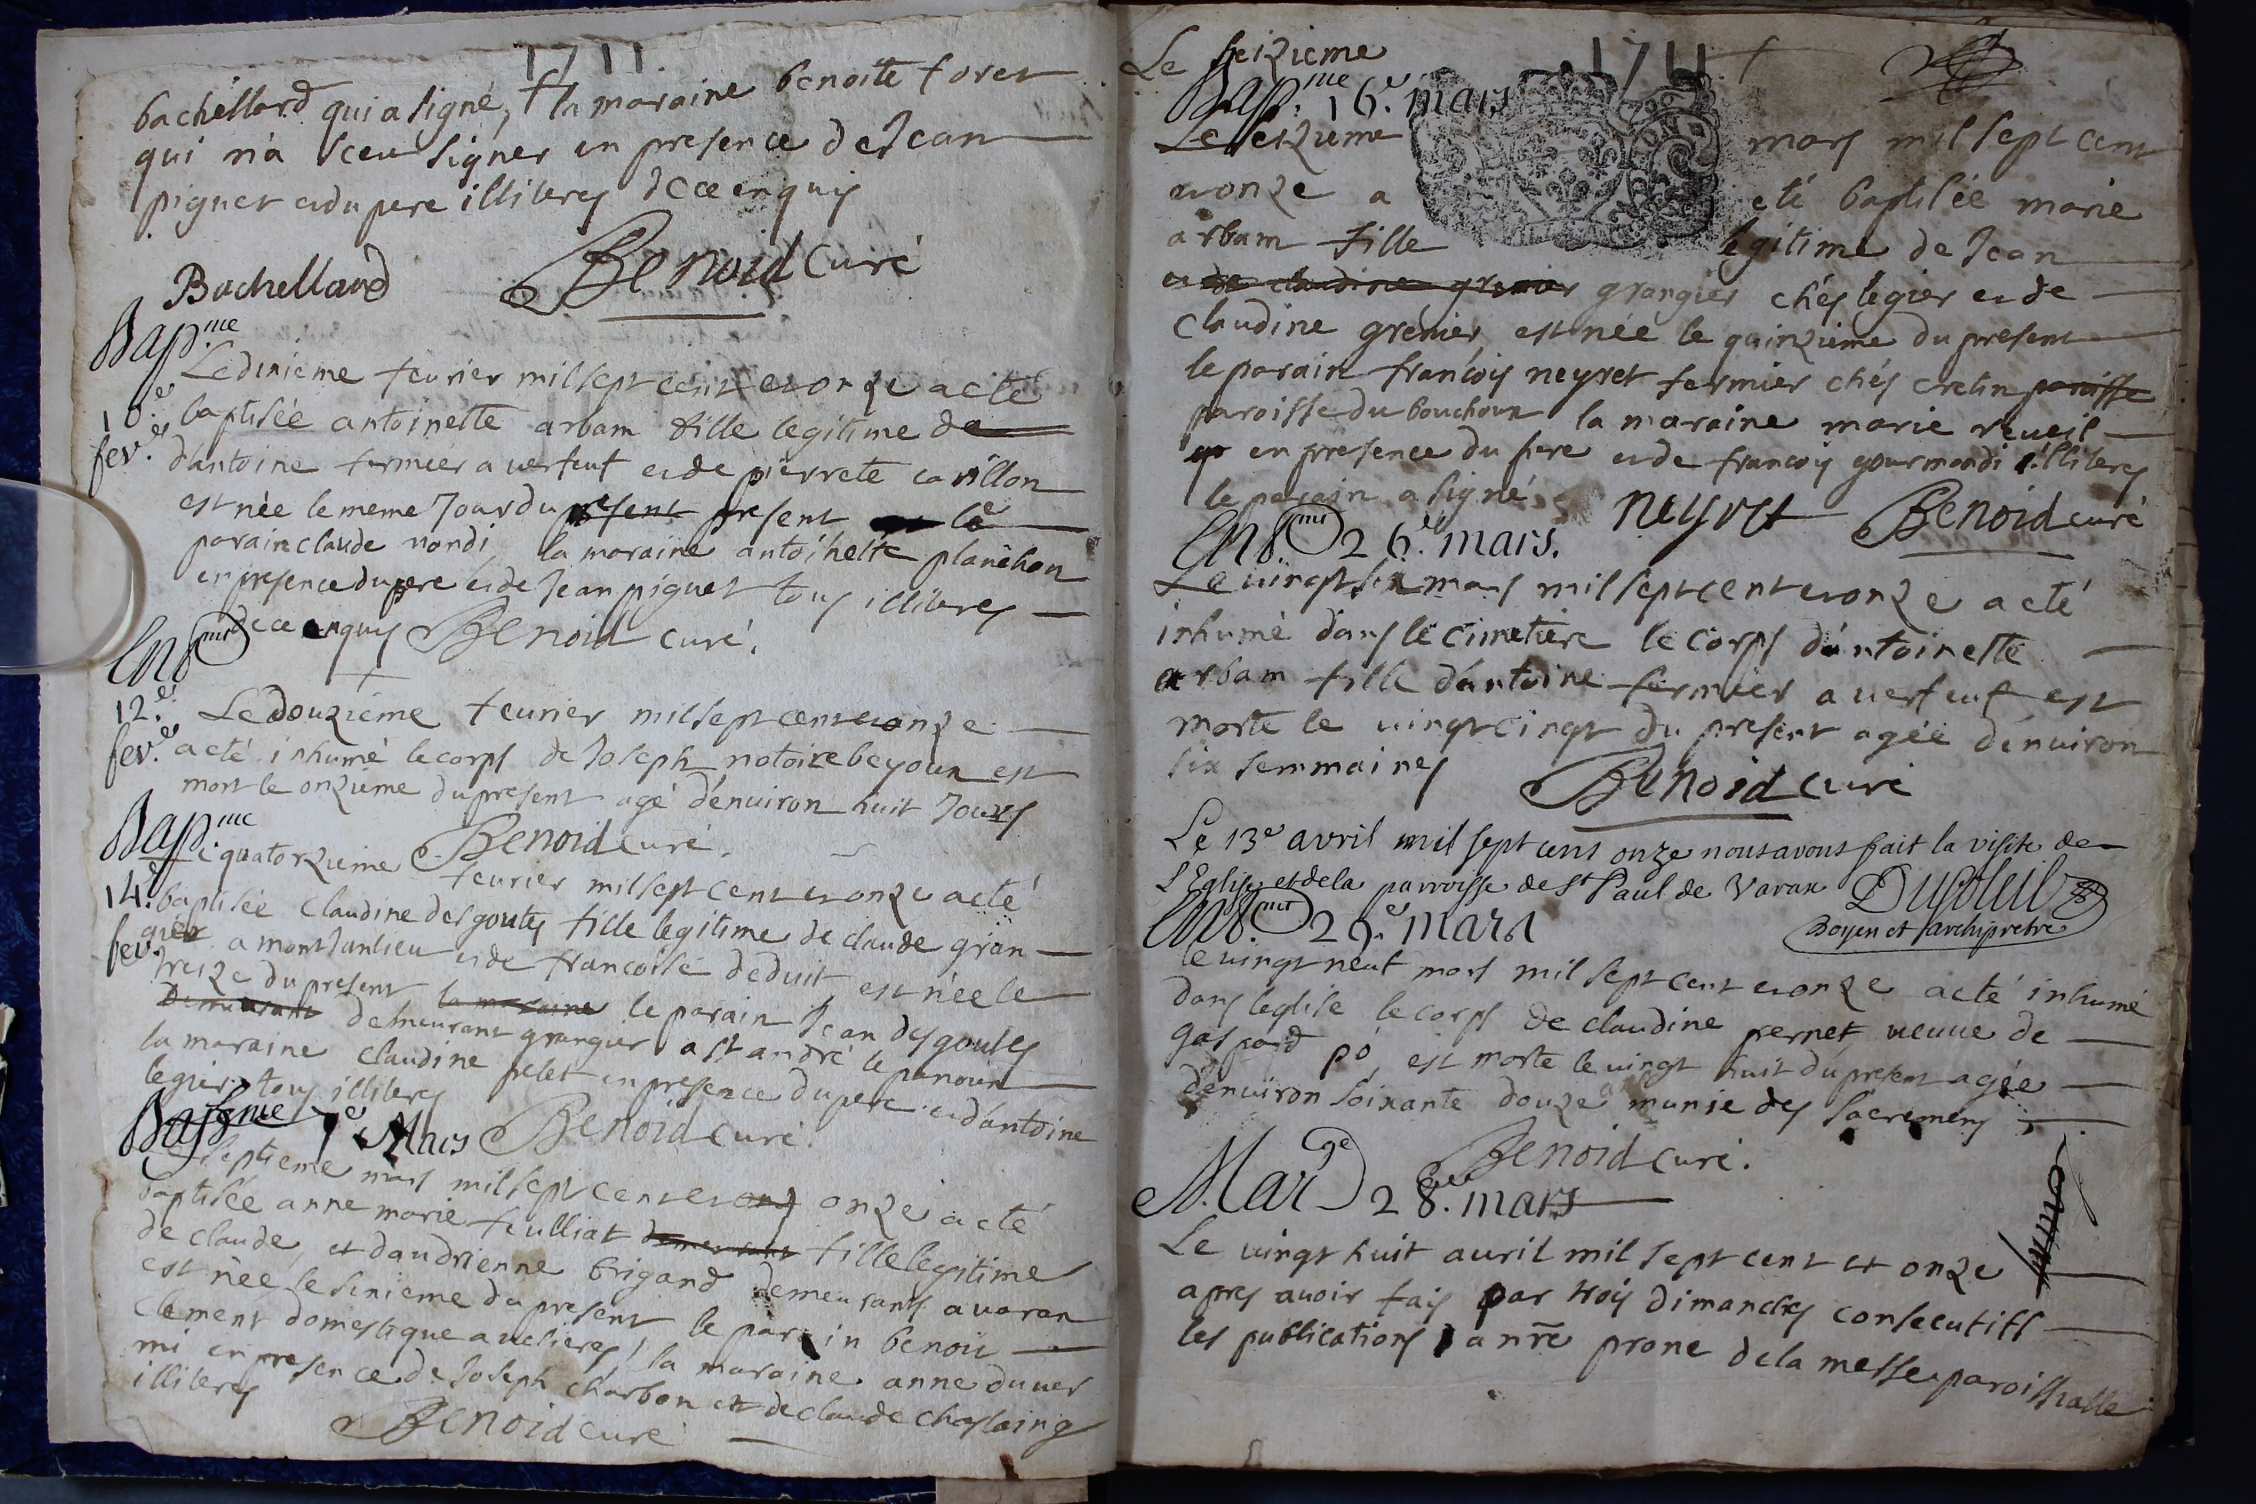 1711.
bachellard qui a signé, la maraine benoite foret
qui n'a sceu signer en presence de Jean
piguet et du pere illiteres de ce enquis
Bachellard Benoid Curé
Bap.me
10.e fev.er
Le dixieme feurier mil sept cent et onze a eté
baptisée antoinette arbam fille legitime de
d'antoine fermier a verfeuf et de pierrete carillon
est née le meme Jour du present present le
parain claude nondi, la maraine antoinette planchon
en presence du pere et de Jean piguet tous illiteres
de ce enquis Benoid curé.
En8.mt
12.e fev.er
Le douzieme feurier mil sept cent et onze
a eté inhumé le corps de Joseph notoire beyoux est
mort le onzieme du present agé d'enuiron huit Jours
Benoid curé.
Bap.me
14.e fev.
Le quatorzieme feurier mil sept cent et onze a eté
baptisée claudine desgoutes fille legitime de claude gran
gier a monthanlieu et de francoise deduit est née le
treize du present la maraine le parain Jean desgoutes
Demeurant demeurant grangier a st andré le panoux
la maraine claudine pelet en presence du pere et d'antoine
legier tous illiteres Benoid curé.
Baptme 7.e Mars
Le septieme mars mil sept cent et onz onze a eté
baptisée anne marie feulliat demeurant fille legitime
de claude, et dandrienne brigand demeurants a varan
est née le sixieme du present le parain benoit
clement domestique a velieres, la maraine anne duver
mi en presence de Joseph charbon et de claude chaslaing
illiteres
Benoid curé
1711
Le seizieme
Bap.me 16.e mars
Le seizieme mars mil sept cent
et onze a eté baptisée marie
arbam fille legitime de Jean
et de claudine grenier grangier chés legier et de
claudine grenier est née le quinzieme du present
le parain francois neyret fermier chés cretin paroisse
paroisse du bouchoux la maraine marie reueil
en presence du pere et de francois gourmandi illiteres
le parain a signé neyret Benoid curé
En8.mt 26.e mars.
Le vingt six mars mil sept cent et onze a eté
inhumé dans le cimetiere le corps d'antoinette
arbam fille d'antoine fermier a verfeuf est
morte le vingt cinqt du present agée d'enuiron
six semmaines
Benoid curé
Le 13e avril mil sept cent onze nous avons fait la visite de
l'Eglise et de la parroisse de st Paul de Varax Dusoleil
Doyen et archipretre
En8.mt 29.e mars
le vingt neuf mars mil sept cent et onze a eté inhumé
dans leglise le corps de claudine pernet veuue de
gaspard pó, est morte le vingt huit du present agée
denuiron soixante douze ans munie des sacremens
Benoid curé.
Mar.ge 28. mars
Le vingt huit auril mil sept cent et onze
apres auoir fais par trois dimanches consecutifs
les publications a nre prone de la messe paroissialle